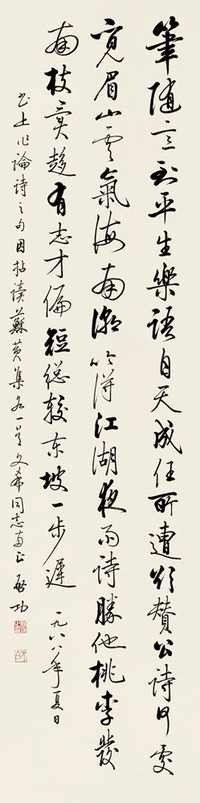 筆随意到平生樂語自天成任所遭欲贊公詩何處
覓眉山雲氣海南潮吟得江湖夜雨詩勝他桃李發
南枝趨有志才偏短總較東坡一步遲 一九八八年夏日
作論詩之句因拈讀蘇黃集各一首文希同志正 啟功